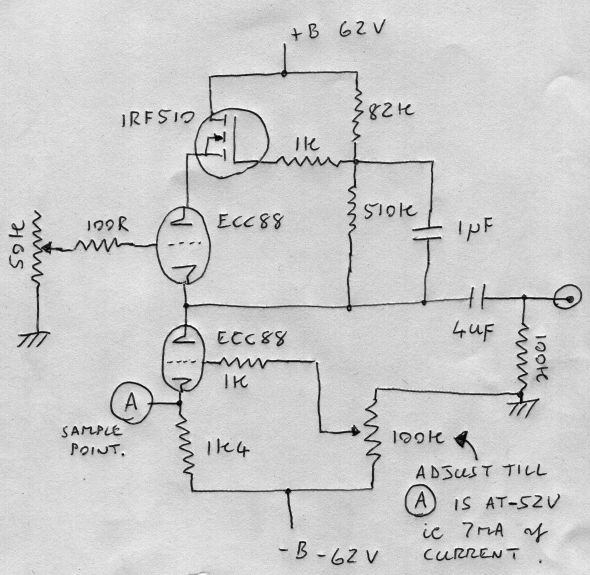 +B 62V
IRF510
82K
1K
510K
1µF
50K
100R
ECC88
ECC88
4UF
100K
1K
A
SAMPLE
POINT.
1K4
100K
ADJUST TILL
A IS AT -52V
ie 7MA of
CURRENT.
-B -62V